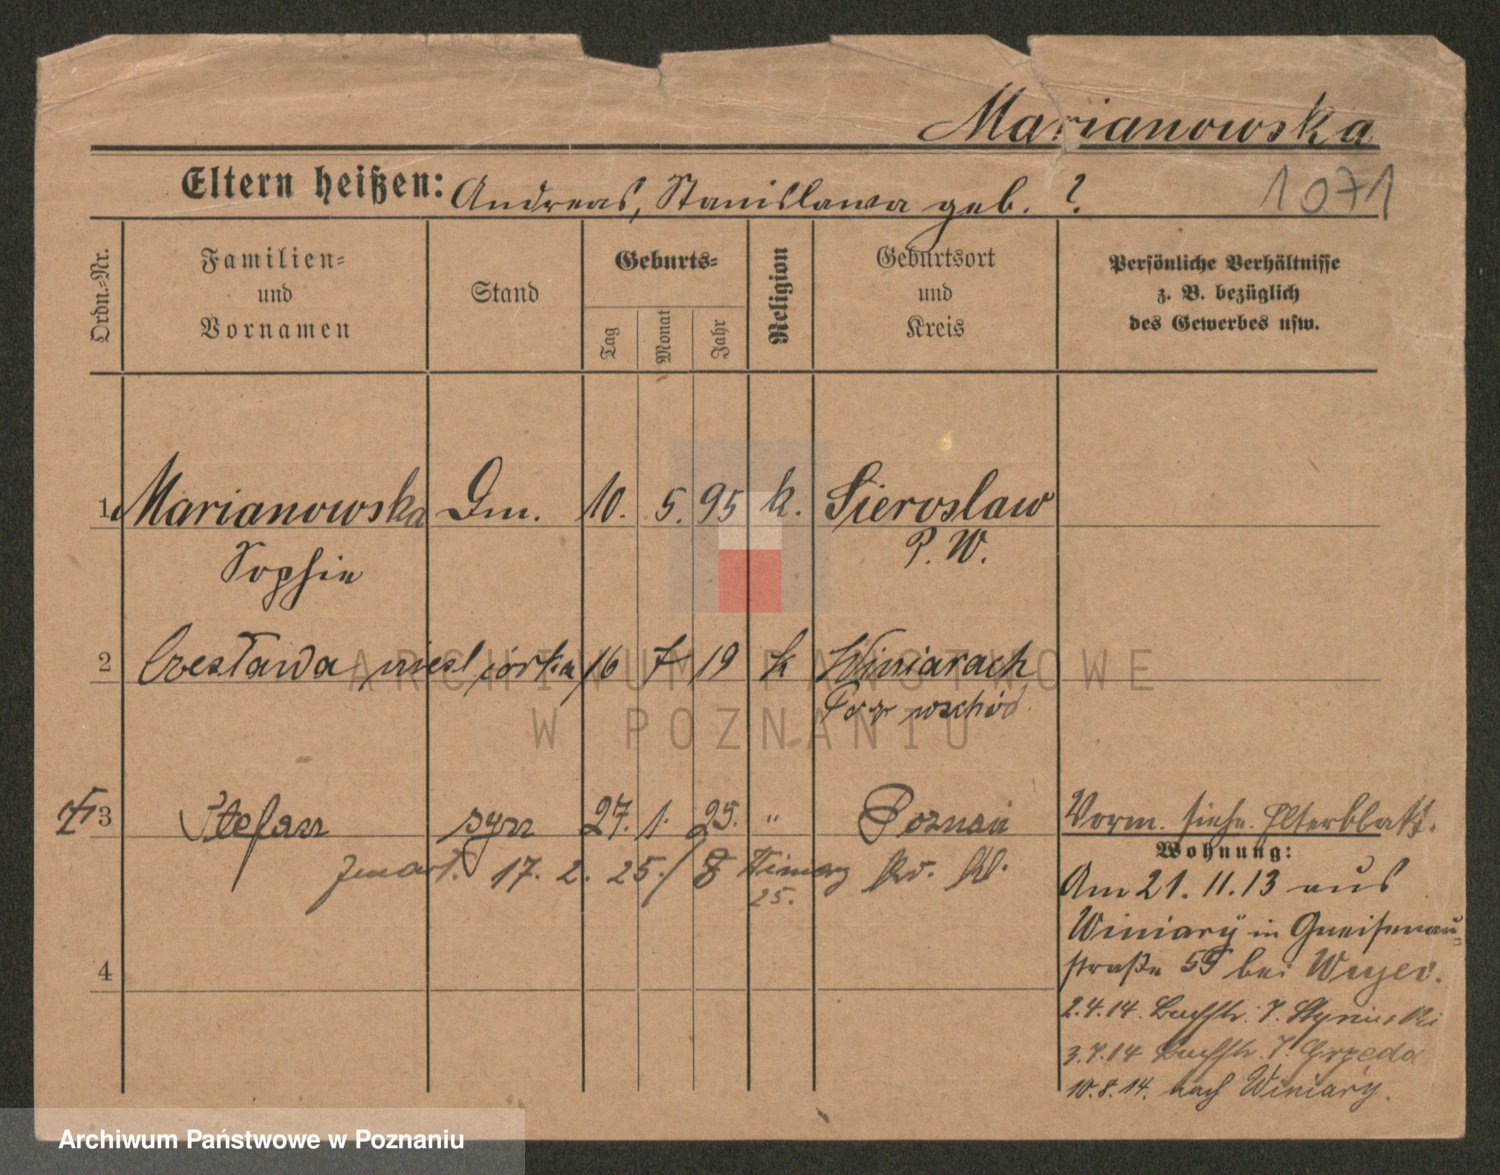 Marianowska
Eltern heißen: Andreas, Stanislawa geb. ?
1071
Ordn.-Nr.
Familien- und Vornamen
Stand
Geburts-
Tag
Monat
Jahr
Religion
Geburtsort und Kreis
Persönliche Verhältnisse
z. B. bezüglich
des Gewerbes usw.
1 Marianowska Dm. 10. 5. 95 k. Sieroslaw
Sophie P. W.
2 Czesława niesl córka 16 7 19 k Winiarach
Poz wschód
3 Stefan syn 27. 1. 25. " Poznań
Vorm. siehe Elterblatt.
zmarł. 17. 2. 25./
25.
Wohnung:
Am 21. 11. 13 aus
Winiary in Gneisenau-
straße 55 bei
4
2.4.14. Buchstr. 7.
3.7.14 Buchstr. 7. Grzeda
10.8.14. nach Winiary.
ARCHIWUM PAŃSTWOWE
W POZNANIU
Archiwum Państwowe w Poznaniu